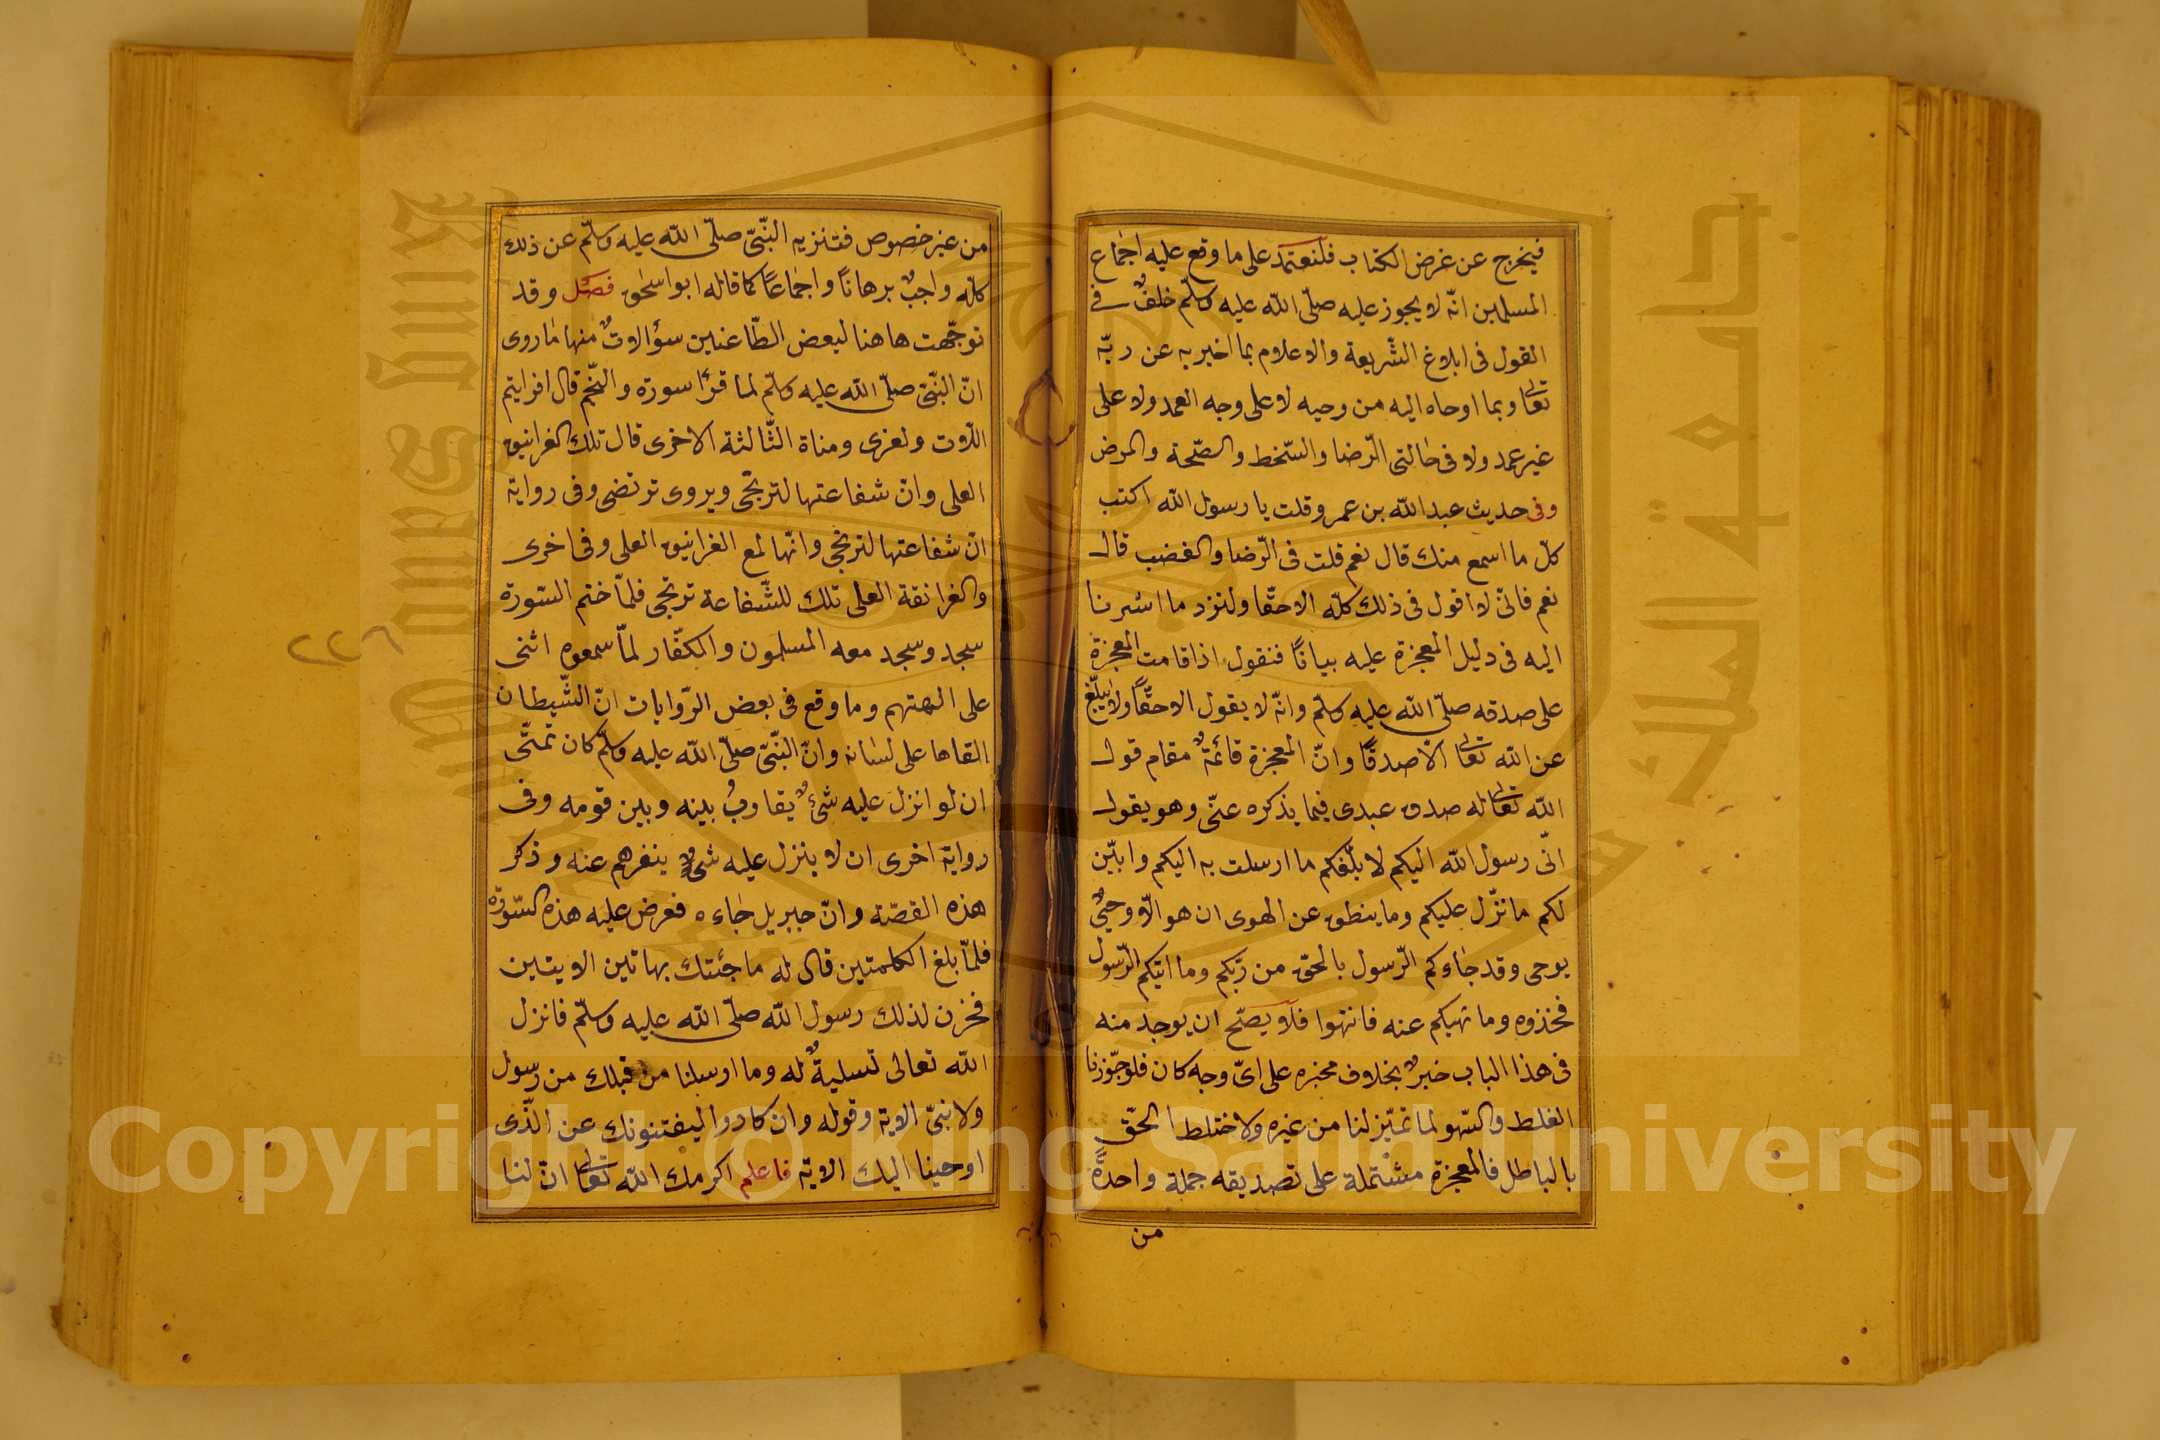 فيخرج عن غرض الكتاب فلنعتمد على ما وقع عليه اجماع
المسلمين انّه لا يجوز عليه صلّى الله عليه وسلّم خلفٌ فى
القول فى ابلاغ الشّريعة والاعلام بما اخبر به عن ربّه
تعالى وبما اوحاه اليه من وحيه لا على وجه العمد ولا على
غير عمد ولا فى حالتى الرّضا والسّخط والصّحة والمرض
وفى حديث عبد الله بن عمرو قلت يا رسول الله اكتب
كلّ ما اسمع منك قال نعم قلت فى الرّضا والغضب قال
نعم فانّى لا اقول فى ذلك كلّه الا حقّا ولنزد ما اشرنا
اليه فى دليل المعجزة عليه بيانًا فنقول اذا قامت المعجزة
على صدقه صلّى الله عليه وسلّم وانّه لا يقول الا حقًّا ولا يبلّغ
عن الله تعالى الّا صدقًا وانّ المعجزة قائمةٌ مقام قول
الله تعالى له صدق عبدى فيما يذكره عنّى وهو يقول
انّى رسول الله اليكم لابلّغكم ما ارسلت به اليكم وابيّن
لكم ما نزّل عليكم وما ينطق عن الهوى ان هو الّا وحىٌ
يوحى وقد جاءكم الرّسول بالحق من ربّكم وما اتيكم الرّسول
فخذوه وما نهيكم عنه فانتهوا فلا يصّح ان يوجد منه
فى هذا الباب خبرٌ بخلاف مخبره على اىّ وجه كان فلو جوّزنا
الغلط والسّهو لما تميّز لنا من غيره ولاختلط الحقّ
بالباطل فالمعجزة مشتملة على تصديقه جملة واحدةً
من
من غير خصوص فتنزيه النّبىّ صلّى الله عليه وسلّم عن ذلك
كلّه واجبٌ برهانًا واجماعًا كما قاله ابو اسحق فصل وقد
توجّهت هاهنا لبعض الطّاعنين سؤالاتٌ منها ما روى
انّ النبّىّ صلّى الله عليه وسلّم لما قرأ سورة والنّجم قال افرايتم
اللّات ولعزى ومناة الثّالثة الاخرى قال تلك الغرانيق
العلى وانّ شفاعتها لترتجى ويروى ترتضى وفى رواية
انّ شفاعتها لترتجى وانّها لمع الغرانيق العلى وفى اخرى
والغرانقة العلى تلك للشّفاعة ترتجى فلمّا ختم السّورة
سجد وسجد معه المسلمون والكفّار لمّا سمعوه اثنى
على الهتهم وما وقع فى بعض الرّوايات انّ الشّيطان
القاها على لسانه وانّ النّبىّ صلّى الله عليه وسلّم كان تمنّى
ان لو انزل عليه شئٌ يقارب بينه وبين قومه وفى
رواية اخرى ان لا ينزل عليه شئٌ ينفرهم عنه وذكر
هذه القصّة وانّ جبريل جاءه فعرض عليه هذه السّورة
فلمّا بلغ الكلمتين قال له ما جئتك بهاتين الايتين
فحزن لذلك رسول الله صلّى الله عليه وسلّم فانزل
الله تعالى تسليةً له وما ارسلنا من قبلك من رسول
ولا نبىّ الاية وقوله وان كادوا ليفتنونك عن الّذى
اوحينا اليك الاية فاعلم اكرمك الله تعالى انّ لنا
٢٢٦
جامعة الملك سعود
King Saud University
Copyright © King Saud University